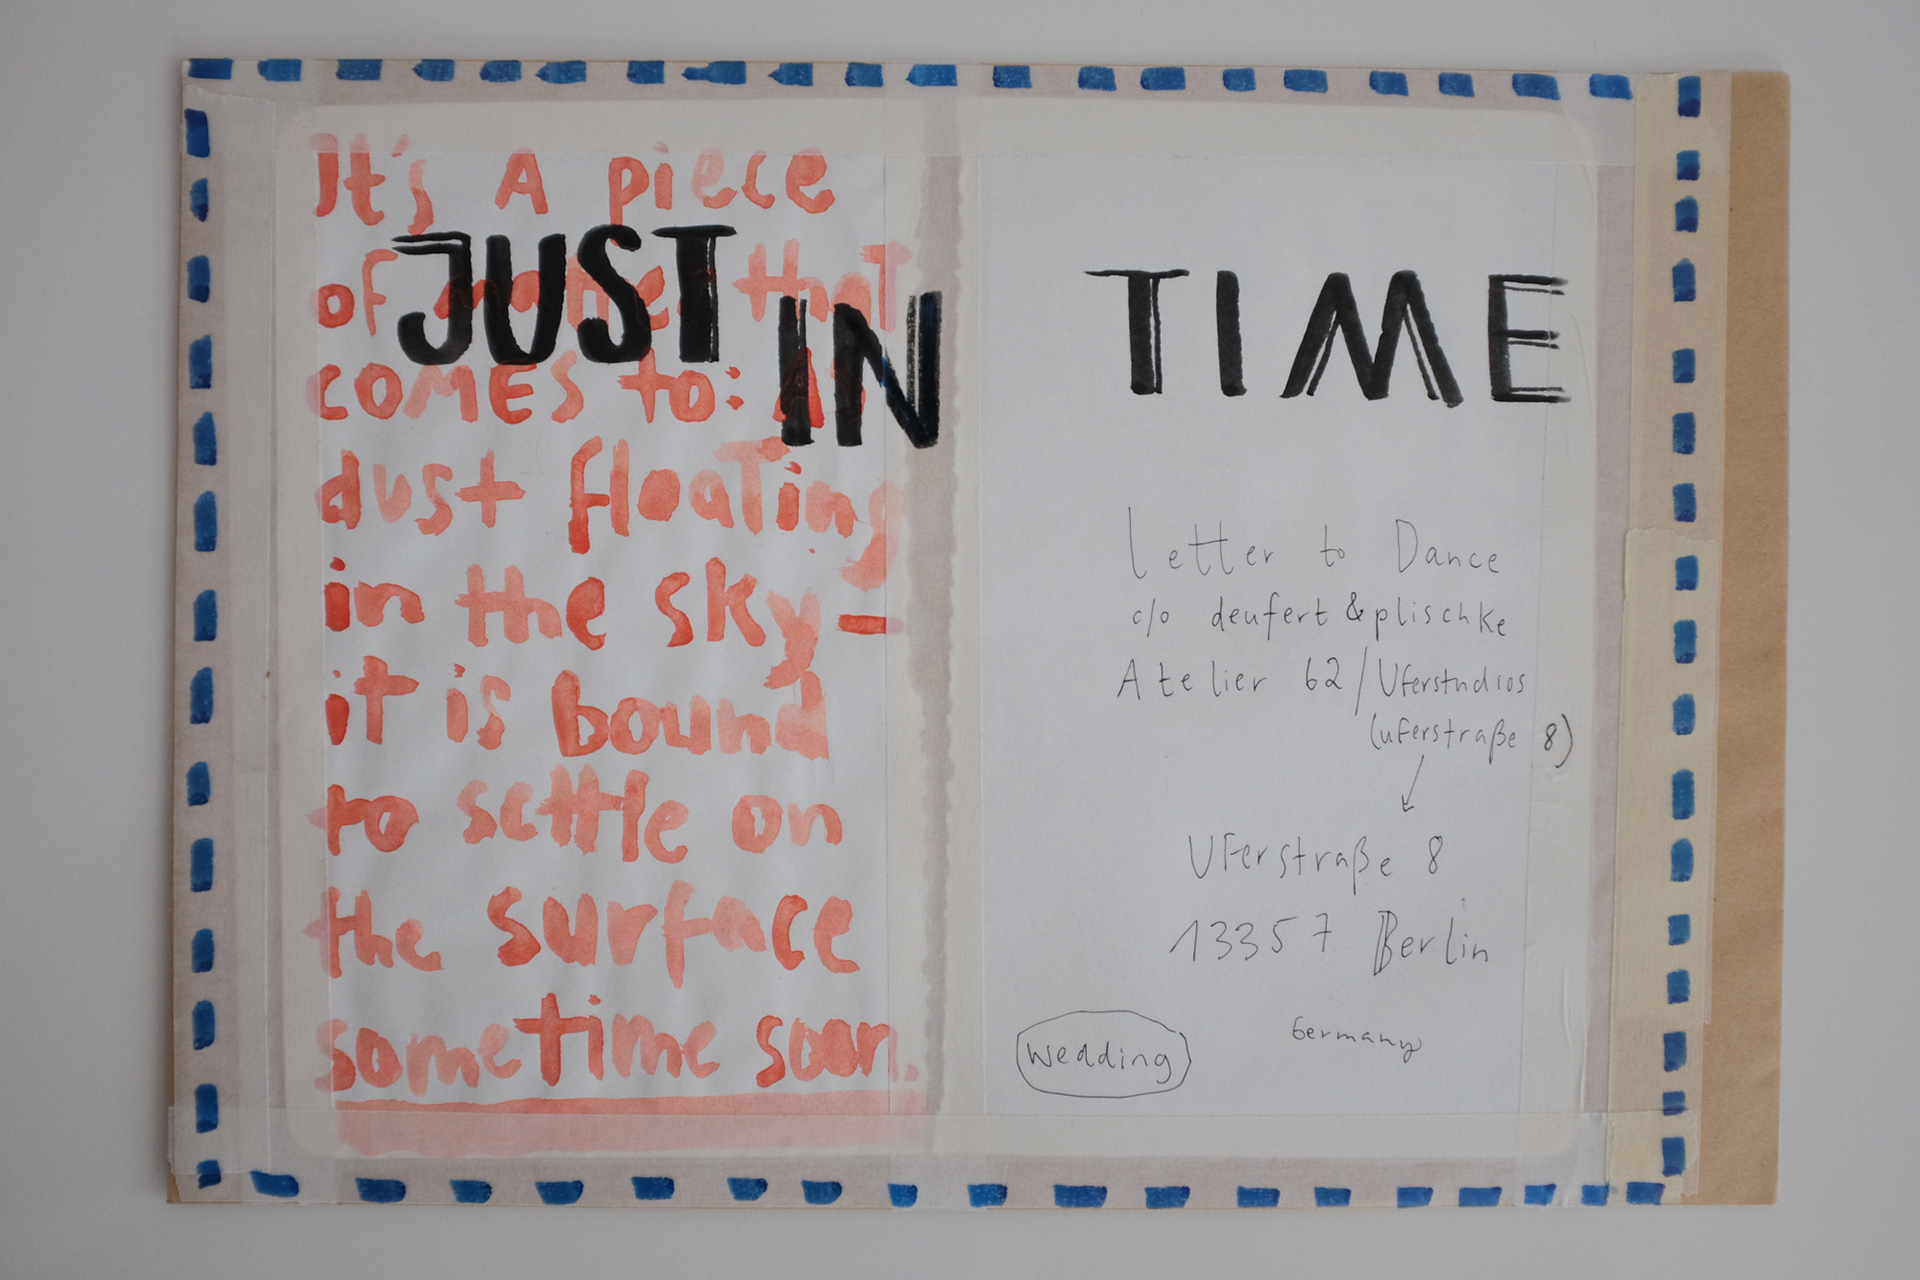 It's A piece
of matter that
comes to: as
dust floating
in the sky—
it is bound
to settle on
the surface
sometime soon.
JUST IN TIME
Letter to Dance
c/o deufert & plischke
Atelier 62 / Uferstudios
(Uferstraße 8)
Uferstraße 8
13357 Berlin
Germany
Wedding